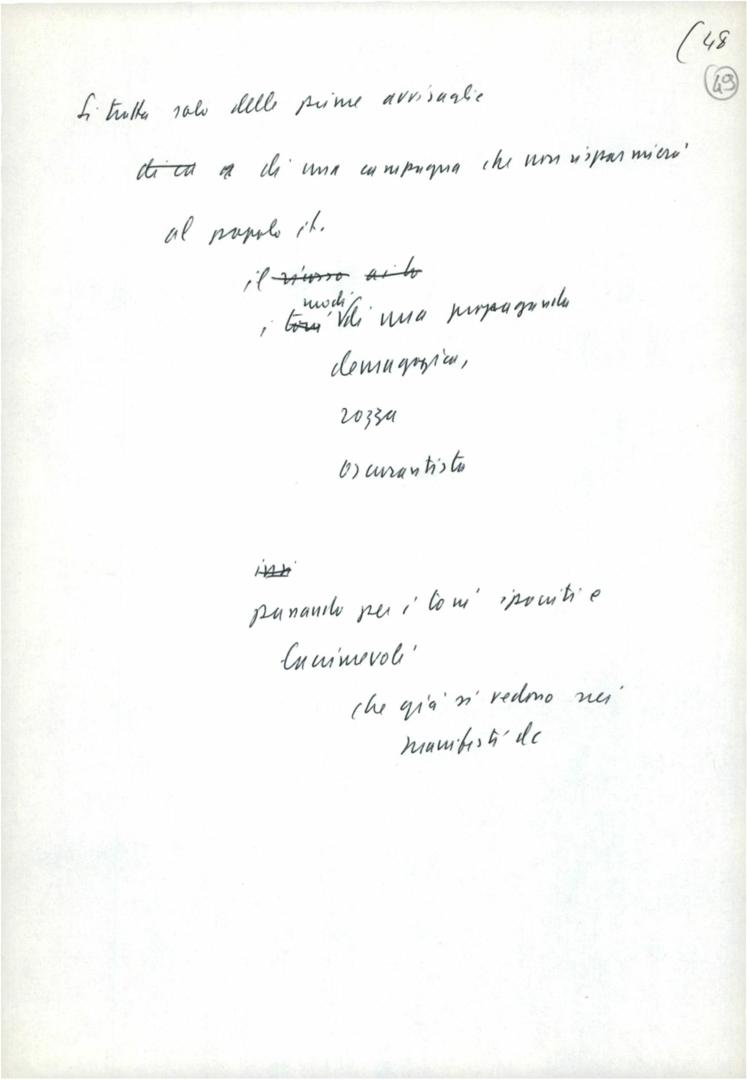 (48
49
Si tratta solo delle prime avvisaglie
di ca a di una campagna che non risparmierà
al popolo it.
il ricorso ai to
modi
i toni di una propaganda
demagogica,
rozza
oscurantista
passando per i toni ipocriti e
lacrimevoli
che già si vedono nei
manifesti dc